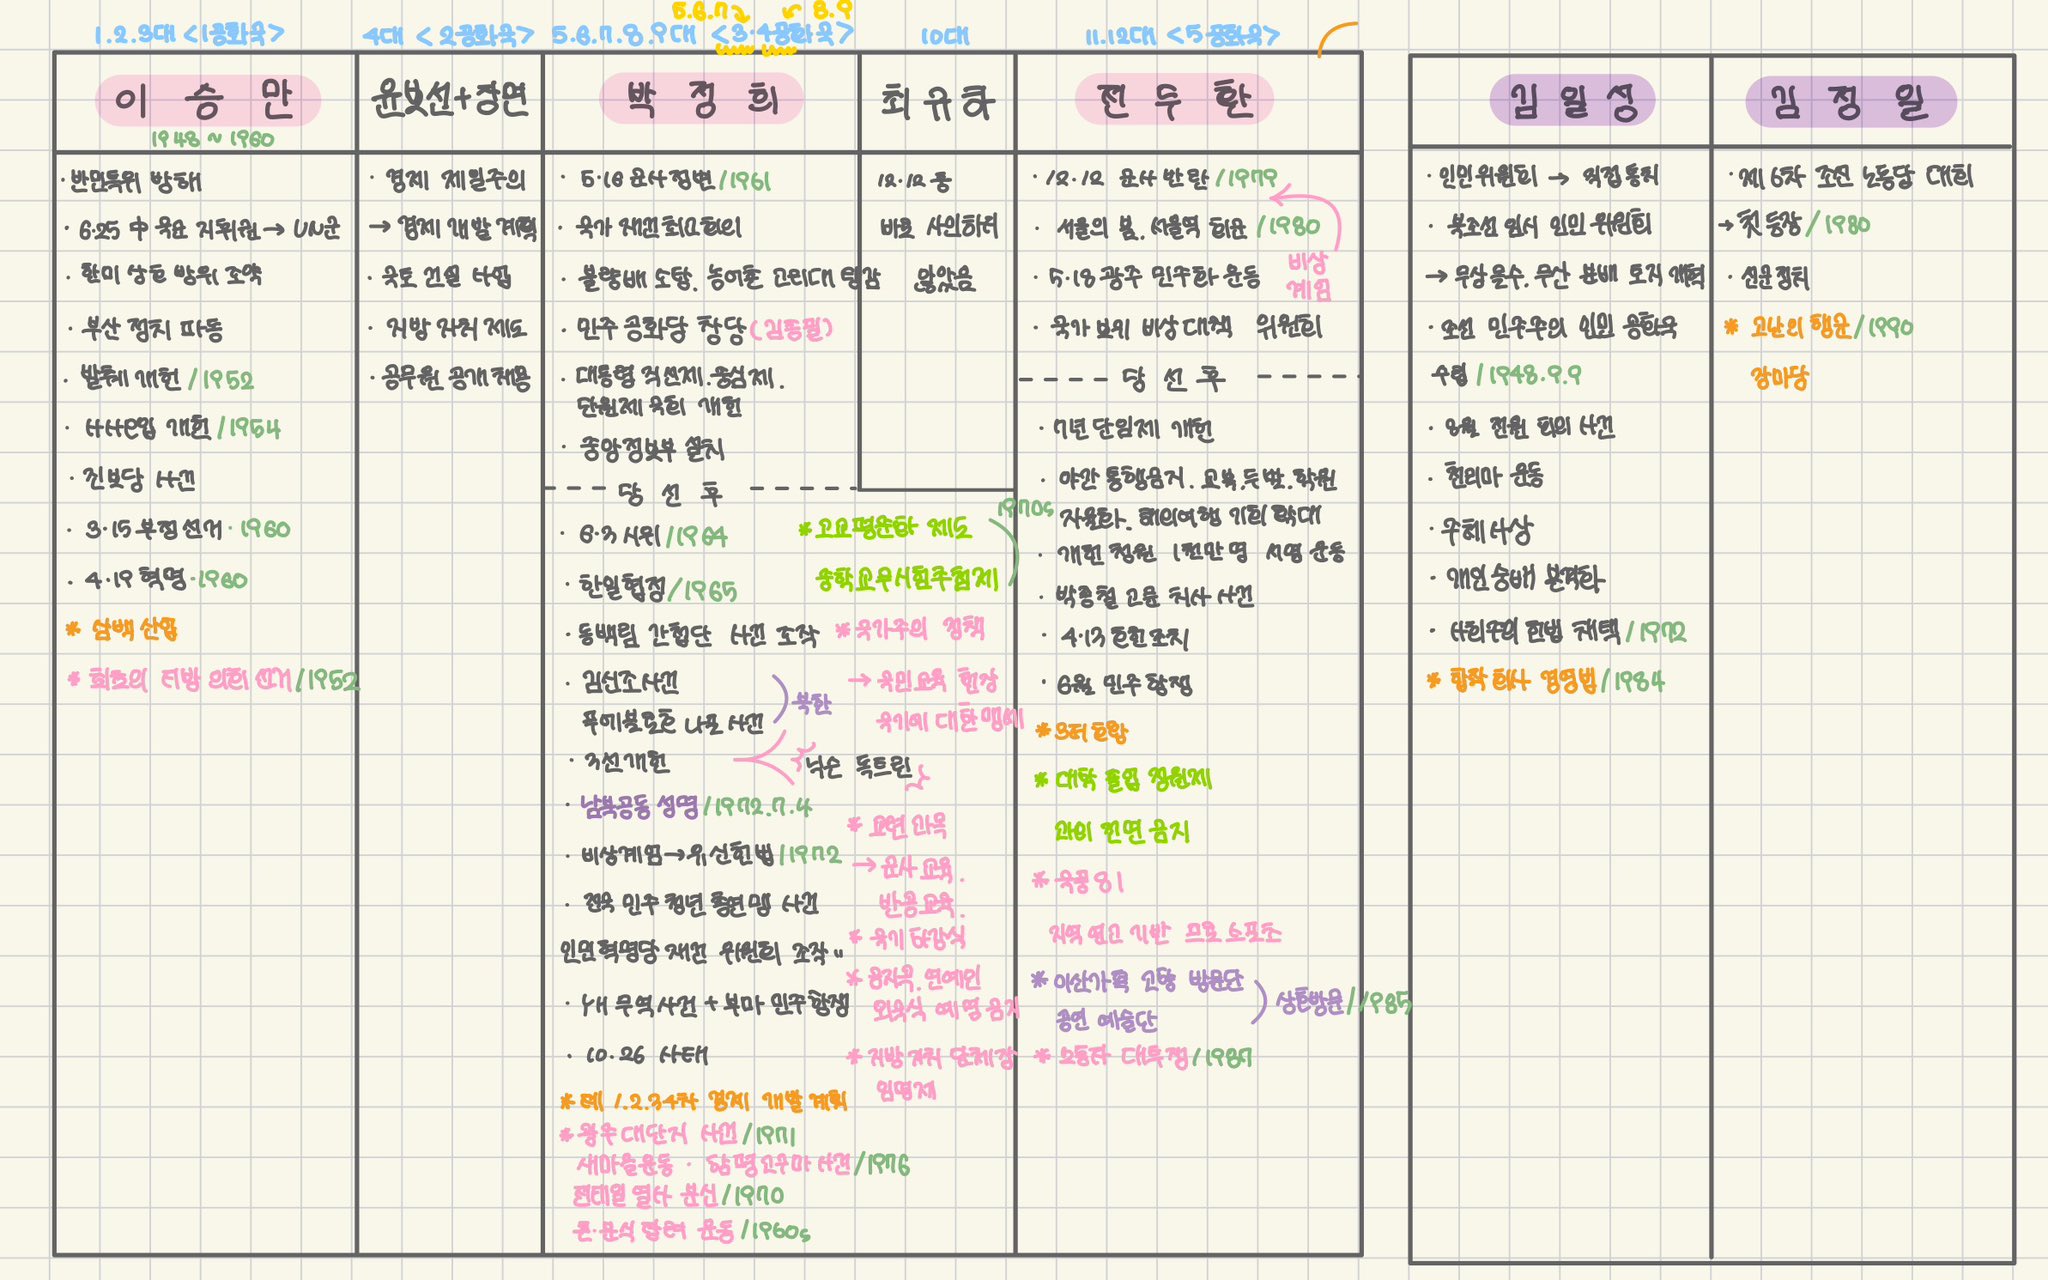 5.6.7 8.9
1.2.3대 <1공화국>
이 승 만
1948 ~ 1960
· 반민특위 방해
· 6.25 中 국군 지휘권 → UN군
· 한미 상호 방위 조약
· 부산 정치 파동
· 발췌 개헌 / 1952
· 사사오입 개헌 / 1954
· 진보당 사건
· 3·15 부정선거 · 1960
· 4·19 혁명 · 1960
* 삼백 산업
* 최초의 지방 의회 선거 / 1952
4대 < 2공화국>
윤보선+장면
· 경제 제일주의
→ 경제 개발 계획
· 국토 건설 사업
· 지방 자치 제도
· 공무원 공개 채용
5.6.7.8.9대 <3·4공화국>
박 정 희
· 5·16 군사정변 / 1961
· 국가 재건최고회의
· 불량배 소탕. 농어촌 고리대 탕감
· 민주 공화당 창당 (김종필)
· 대통령 직선제.중심제.
단원제 국회 개헌
· 중앙정보부 설치
당 선 후
· 6·3 시위 / 1964
· 한일협정 / 1965
· 동백림 간첩단 사건 조작
· 김신조사건
푸에블로호 나포 사건
북한
· 3선개헌
닉슨 독트린
· 남북공동 성명 / 1972.7.4
· 비상계엄→유신헌법 / 1972
· 전국 민주 청년 총연맹 사건
인민혁명당 재건 위원회 조작"
· YH 무역사건 + 부마 민주항쟁
· 10·26 사태
* 제 1.2.3.4차 경제 개발 계획
* 광주 대단지 사건 / 1971
새마을운동 · 함평고구마 사건 / 1976
전태일 열사 분신 / 1970
혼·분식 장려 운동 / 1960s
* 고교평준화 제도
중학교무시험추첨제
1970s
* 국가주의 정책
→ 국민교육 헌장
국기에 대한 맹세
* 교련 과목
→ 군사 교육.
반공교육.
* 국기 하강식
* 공직국. 연예인
외국식 예명 금지
* 지방 자치 단체장
임명제
10대
최규하
12·12 등
바로 사인하지
않았음
11.12대 <5공화국>
전 두 환
· 12·12 군사 반란 / 1979
· 서울의 봄. 서울역 회군 / 1980
비상
계엄
· 5·18 광주 민주화 운동
· 국가 보위 비상 대책 위원회
당 선 후
· 7년 단임제 개헌
· 야간 통행금지. 교복.두발.학원
자율화. 해외여행 기회 확대
· 개헌 청원 1천만 명 서명 운동
· 박종철 고문 치사 사건
· 4·13 호헌조치
· 6월 민주 항쟁
* 3저 호황
* 대학 졸업 정원제
과외 전면 금지
* 국풍 81
지역 연고 기반 프로 스포츠
* 이산가족 고향 방문단
공연 예술단
상호방문 / 1985
* 노동자 대투쟁 / 1987
김 일 성
· 인민위원회 → 직접통치
· 북조선 임시 인민 위원회
→ 무상몰수. 무상 분배 토지 개혁
· 조선 민주주의 인민 공화국
수립 / 1948.9.9
· 8월 전원 회의 사건
· 천리마 운동
· 주체사상
· 개인숭배 본격화
· 사회주의 헌법 채택 / 1972
* 합작 회사 경영법 / 1984
김 정 일
· 제 6차 조선 노동당 대회
→ 첫 등장 / 1980
· 선군정치
* 고난의 행군 / 1990
장마당